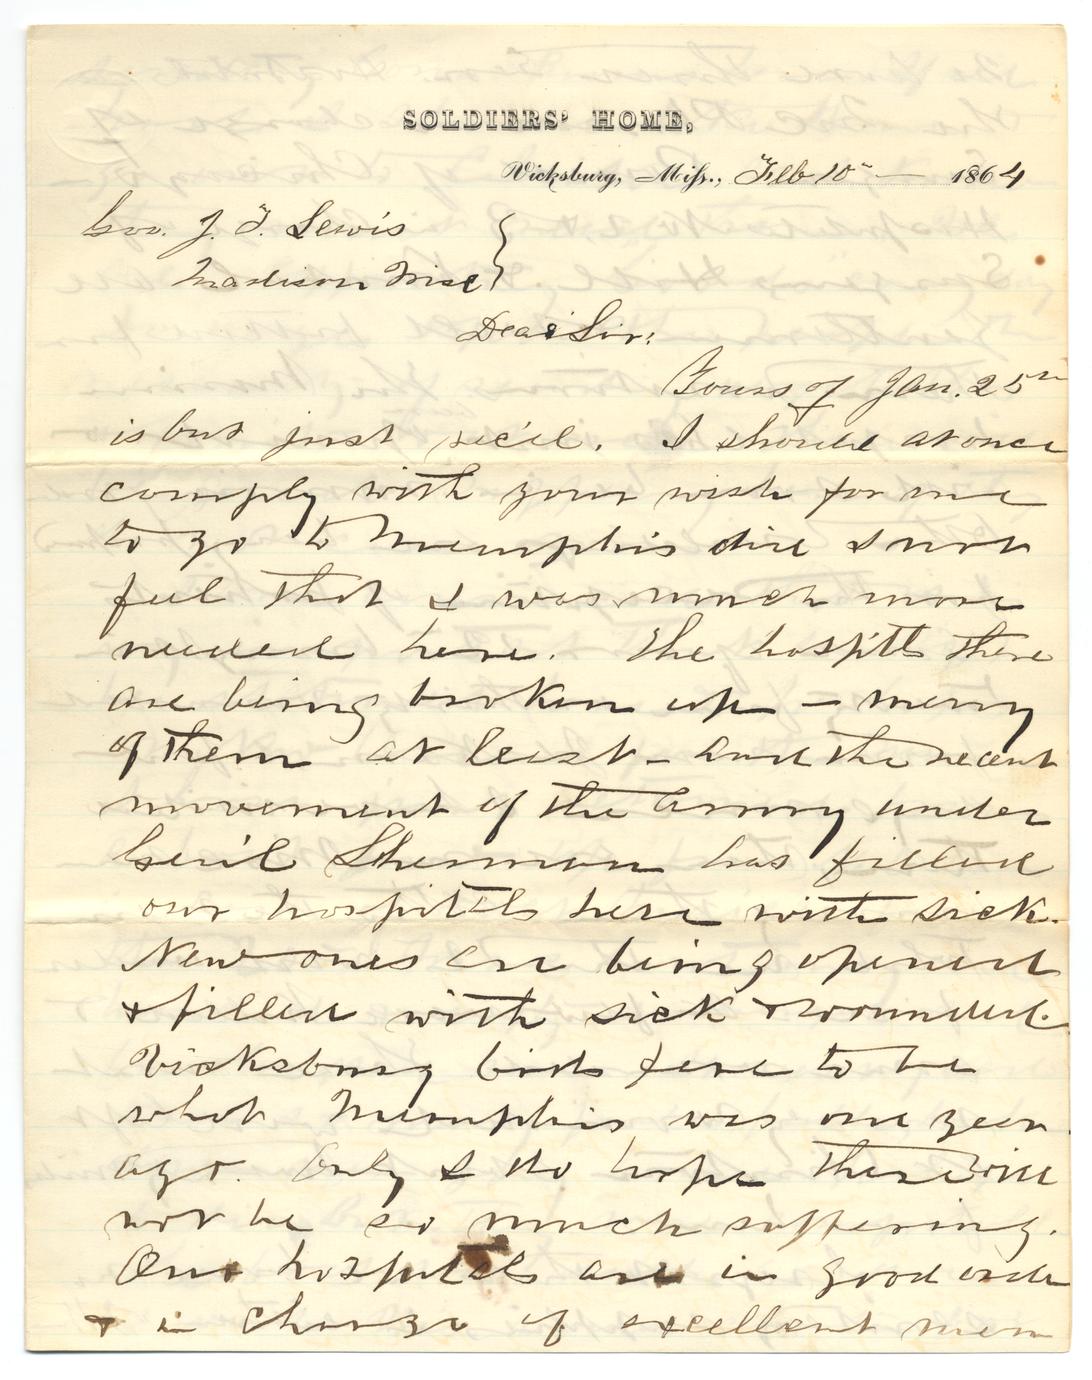 SOLDIERS' HOME,
Vicksburg, Miss., Feb 10th 1864
Gov. J. T. Lewis
Madison Wisc
Dear Sir:
Yours of Jan. 25th
is but just rec'd. I should at once
comply with your wish for me
to go to Memphis did I not
feel that I was much more
needed here. The hospitls there
are being broken up — many
of them at least — and the recent
movement of the Army under
Gen'l Sherman has filled
our hospitls here with sick.
New ones are being opened
& filled with sick & wounded.
Vicksburg bids fare to be
what Memphis was one year
ago. Only I do hope there will
not be so much suffering.
Our hospitals are in good order
& in charge of excellent men